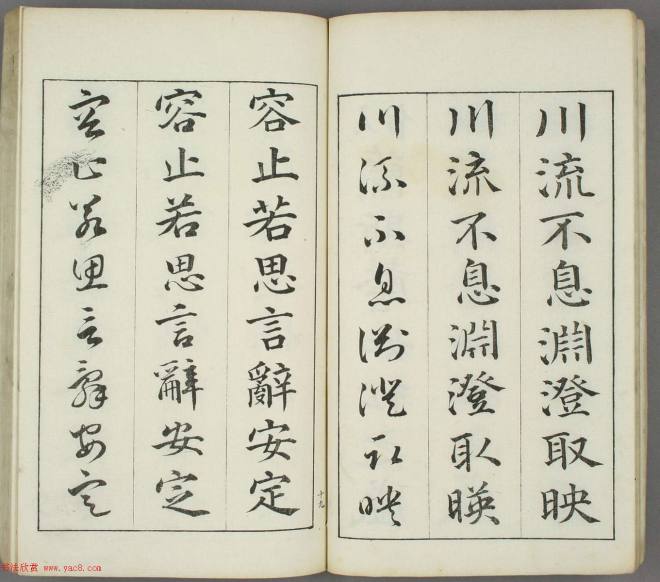 川流不息淵澄取映
川流不息淵澄取暎
川流不息淵澄取暎
容止若思言辭安定
容止若思言辭安定
容止若思言辭安定
十九
书法欣赏 www.yac8.com